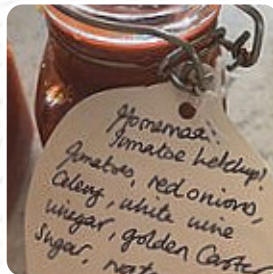 Homemade
Tomatoe Ketchup!
Tomatoes, red onions,
Celery, white wine
vinegar, golden Caste
Sugar,